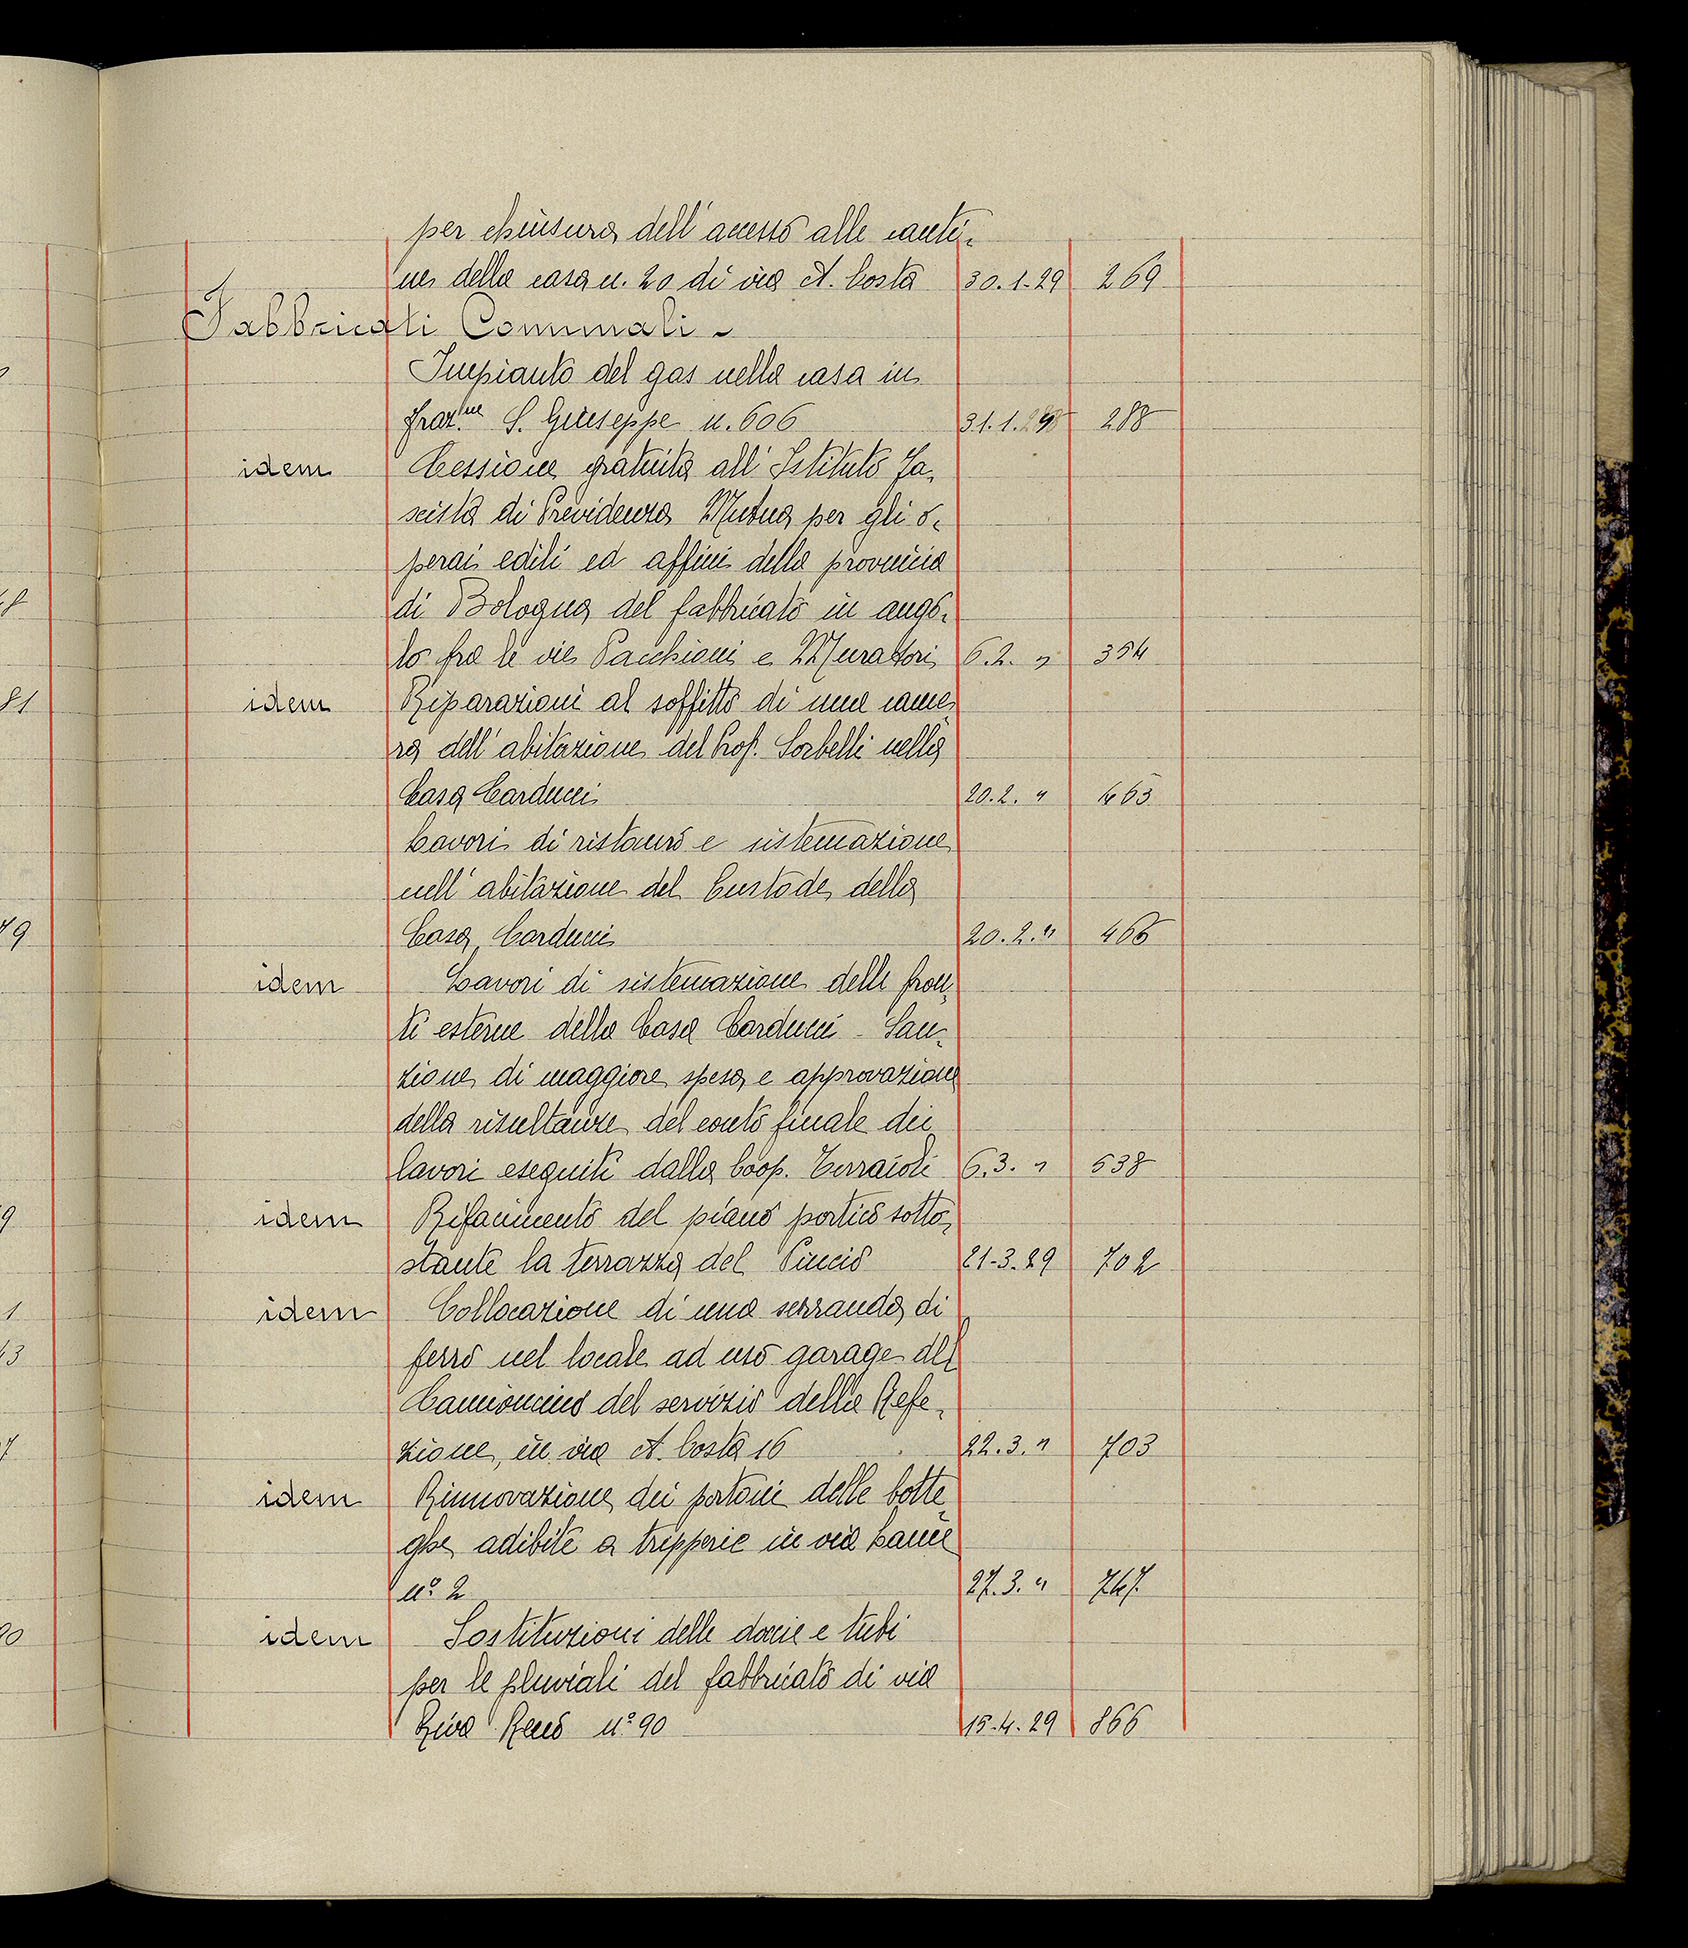 per chiusura dell'accesso alle canti-
ne della casa n. 20 di via A. Costa 30.1.29 269
Fabbricati Comunali -
Impianto del gas nella casa in
fraz.ne S. Giuseppe n. 606 31.1.29 288
idem Cessione gratuita all'Istituto Fa-
scista di Previdenza Mutua per gli o-
perai edili ed affini della provincia
48 di Bologna del fabbricato in ango-
lo fra le vie Pacchioni e Muratori 6.2. " 354
81 idem Riparazioni al soffitto di una came-
ra dell'abitazione del Prof. Sorbelli nella
Casa Carducci 20.2. " 463
Lavori di ristauro e sistemazione
nell'abitazione del Custode della
79 Casa Carducci 20.2. " 466
idem Lavori di sistemazione delle fron-
ti esterne della Casa Carducci - San-
zione di maggiore spesa e approvazione
della risultanze del conto finale dei
lavori eseguiti dalla Coop. Terraioli 6.3. " 538
9 idem Rifacimento del piano portico sotto-
stante la terrazza del Pincio 21-3.29 702
1 idem Collocazione di una serranda di
43 ferro nel locale ad uso garage del
Camioncino del servizio della Refe-
7 zione, in via A. Costa 16 22.3. " 703
idem Rinnovazione dei portoni delle botte-
ghe adibite a tripperie in via Lame
n° 2 27.3. " 747.
90 idem Sostituzioni delle doccie e tubi
per le pluviali del fabbricato di via
Riva Reno n° 90 15-4.29 866